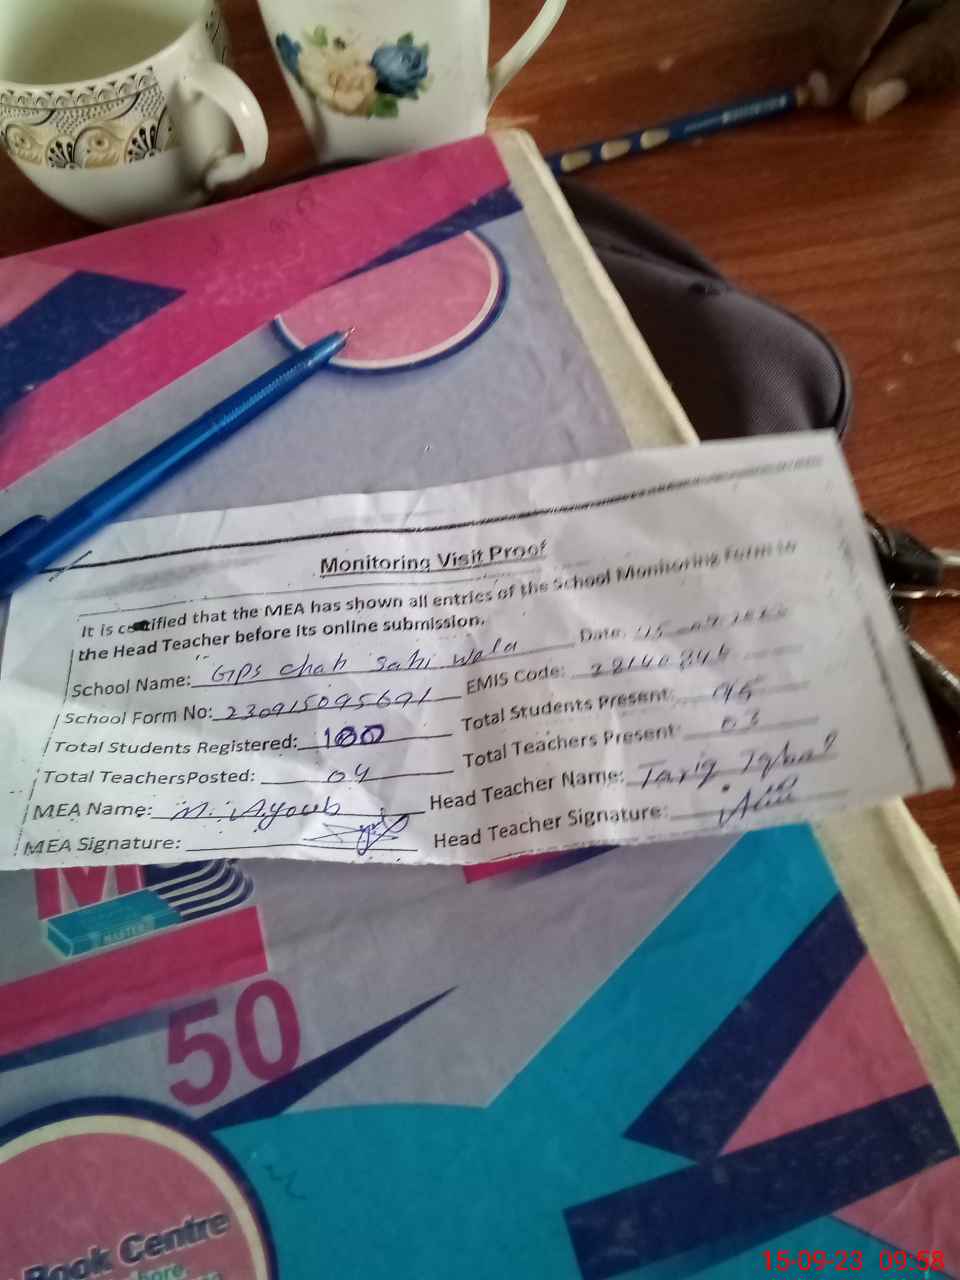 Monitoring Visit Proof
It is certified that the MEA has shown all entries of the School Monitoring Form to
the Head Teacher before its online submission.
School Name: GPS chah Sahi wala Date:
School Form No: 230915095691 EMIS Code:
Total Students Registered: 100 Total Students Present: 95
Total TeachersPosted: 04 Total Teachers Present: 03
MEA Name: M. Ayoub Head Teacher Name: Tariq Iqbal
MEA Signature: Head Teacher Signature:
MASTER
50
Book Centre
15-09-23 09:58